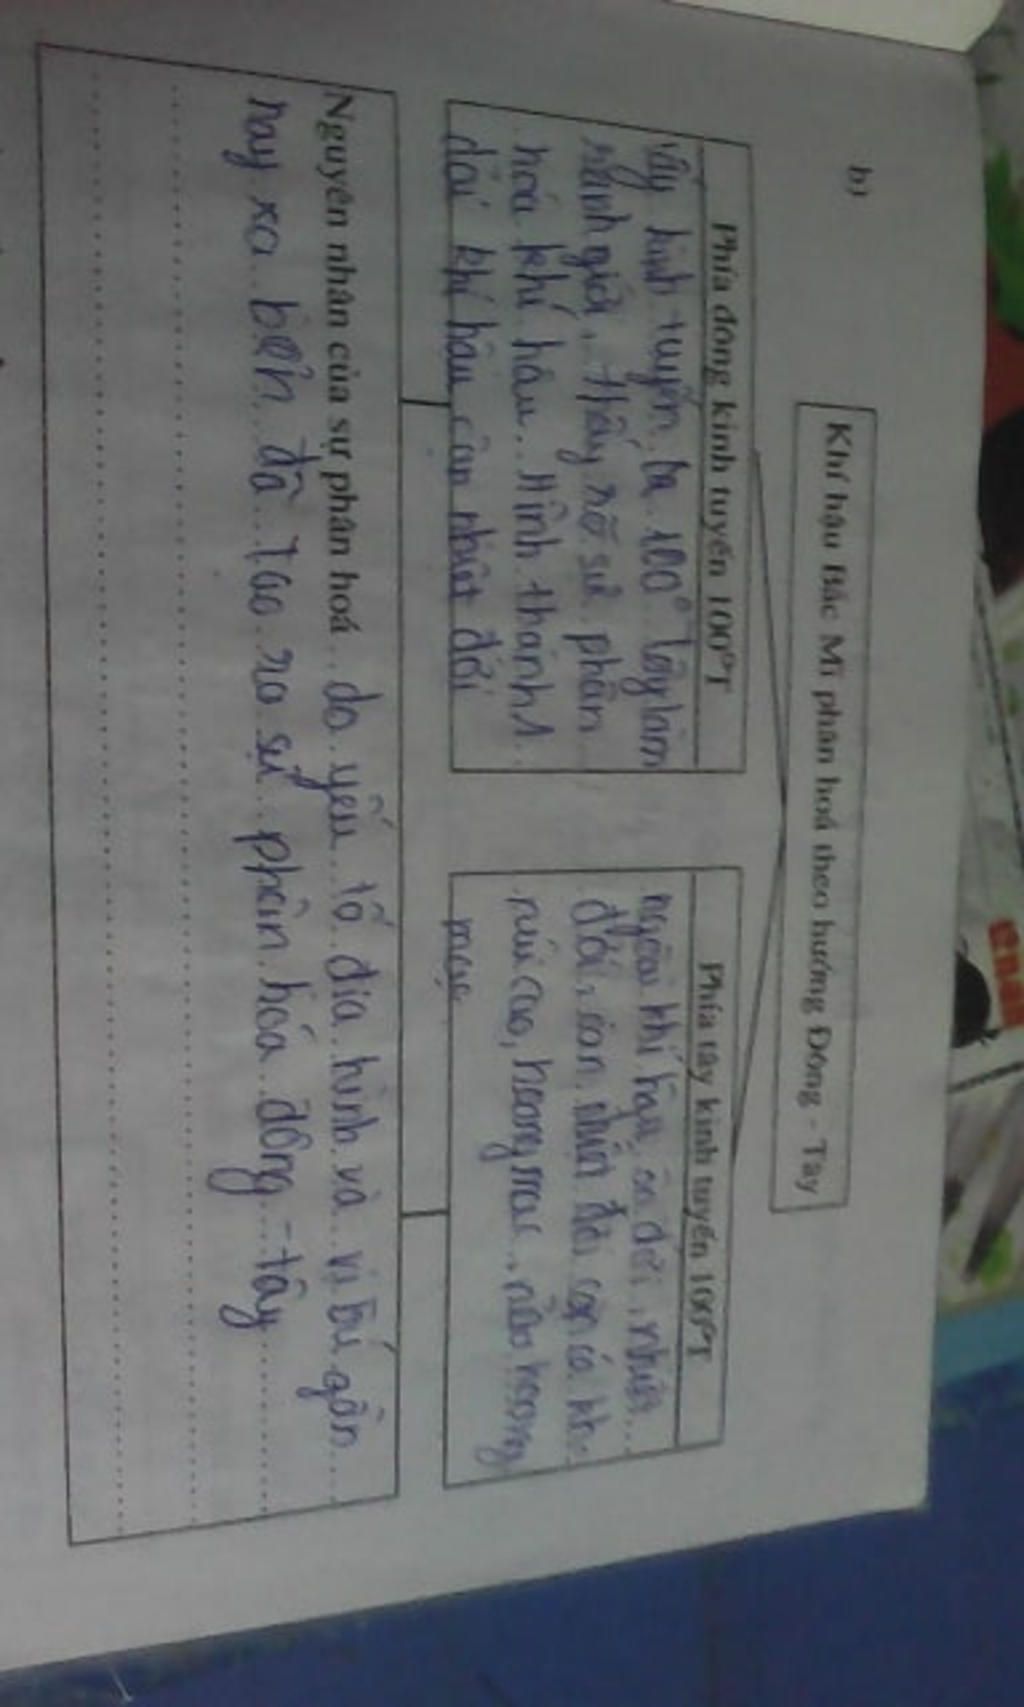 b)
Khí hậu Bắc Mĩ phân hoá theo hướng Đông - Tây
Phía đông kinh tuyến 100°T
lấy kinh tuyến là 100° tây làm
ranh giới, thấy rõ sự phân
hoá khí hậu. Hình thành 1
đới khí hậu cận nhiệt đới
Phía tây kinh tuyến 100°T
ngoài khí hậu ôn đới, nhiệt
đới, cận nhiệt đới còn có kh
núi cao, hoang mạc, nửa hoang
mạc
Nguyên nhân của sự phân hoá do yếu tố địa hình và vị trí gần
hay xa biển đã tạo ra sự phân hóa đông - tây